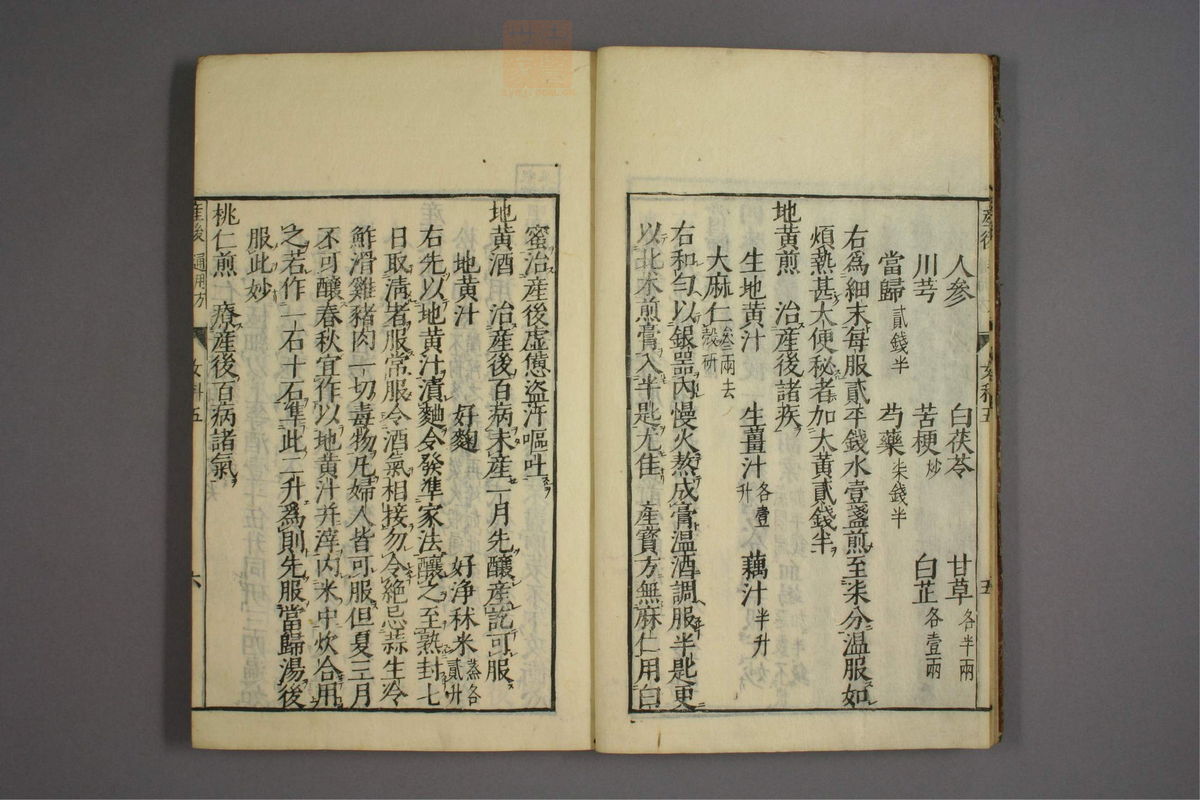 人參 白茯苓 甘草各半兩
川芎 苦梗炒 白芷各壹兩
當歸貳錢半 芍藥柒錢半
右爲細末每服貳錢水壹盞煎至柒分温服如
煩熱甚大便秘者加大黄貳錢半
地黄煎 治産後諸疾
生地黄汁 生薑汁各壹升 藕汁半升
大麻仁叁兩去殼研
右和勻以銀器内慢火熬成膏温酒調服半匙更
以北术煎膏入半匙尤佳 産寶方無麻仁用白
産後 女科五 五
蜜治産後虚憊盜汗嘔吐
地黄酒 治産後百病未産一月先釀産訖可服
地黄汁 好麴 好浄秫米蒸各貳升
右先以地黄汁漬麴令發準家法釀之至熟封七
日取清者服常服令酒氣相接勿令絶忌蒜生冷
鮓滑雞豬肉一切毒物凡婦人皆可服但夏三月
不可釀春秋宜作以地黄汁并滓内米中炊合用
之若作一石十石準此二升爲則先服當歸湯後
服此妙
桃仁煎 療産後百病諸氣
産後 通用方 女科五 六